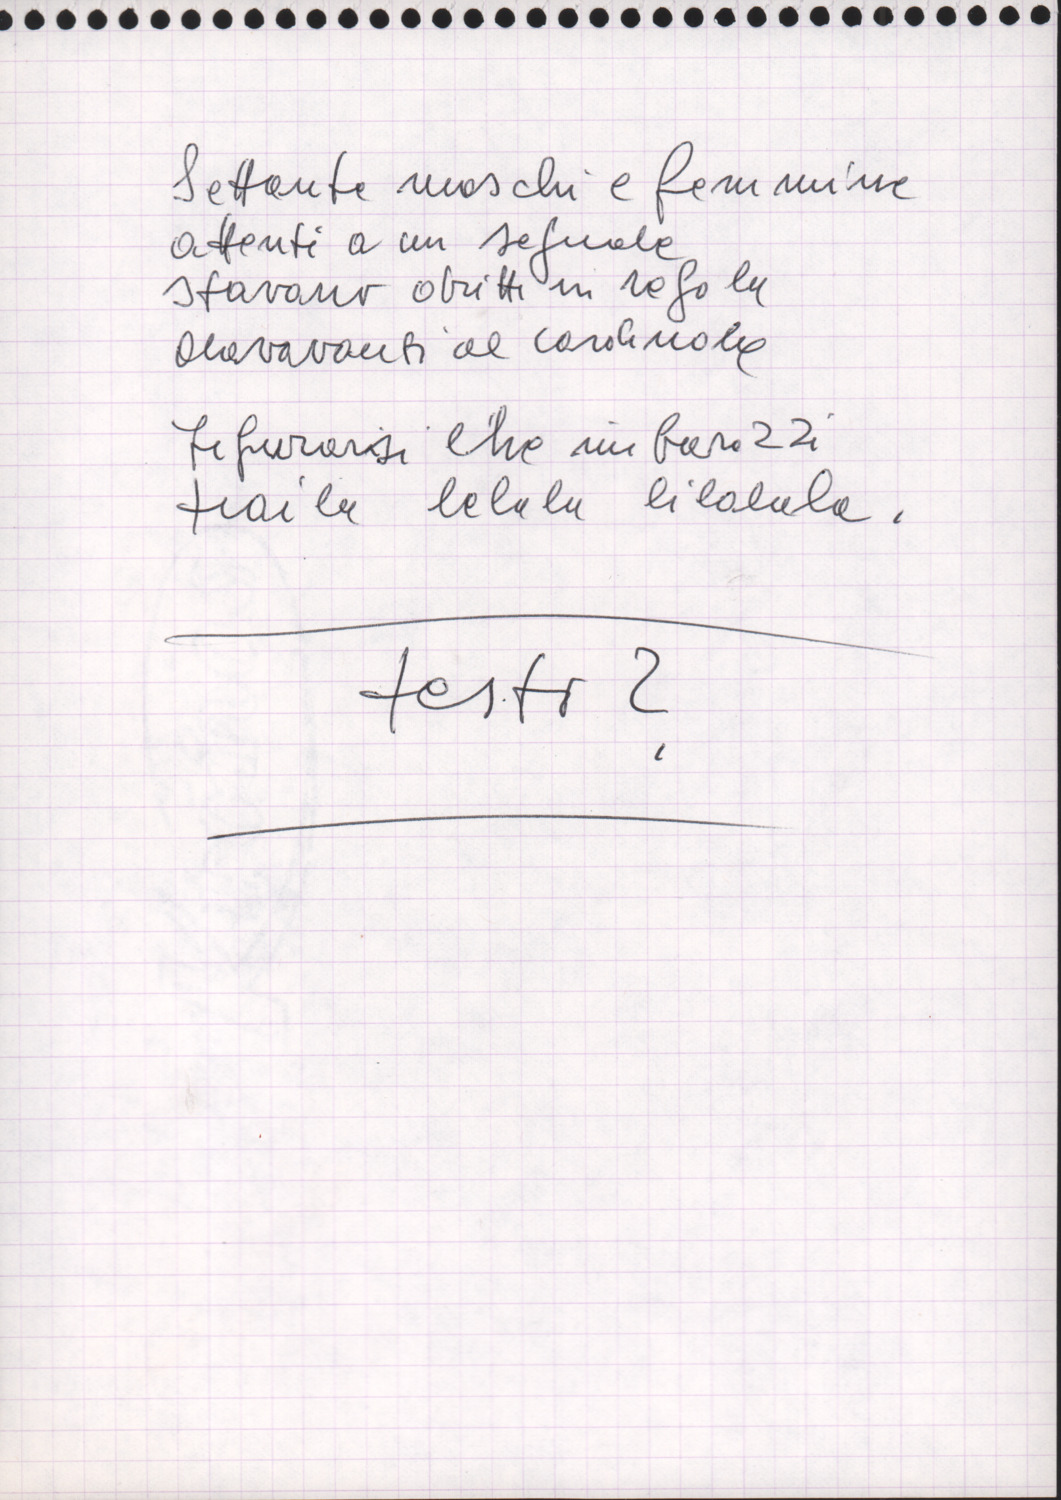 Settanta maschi e femmine
attenti a un segnale
stavano dritti in regola
davavanti al cardinale
figurarsi che imbarazzi
traila lelala lilalala.
testo?